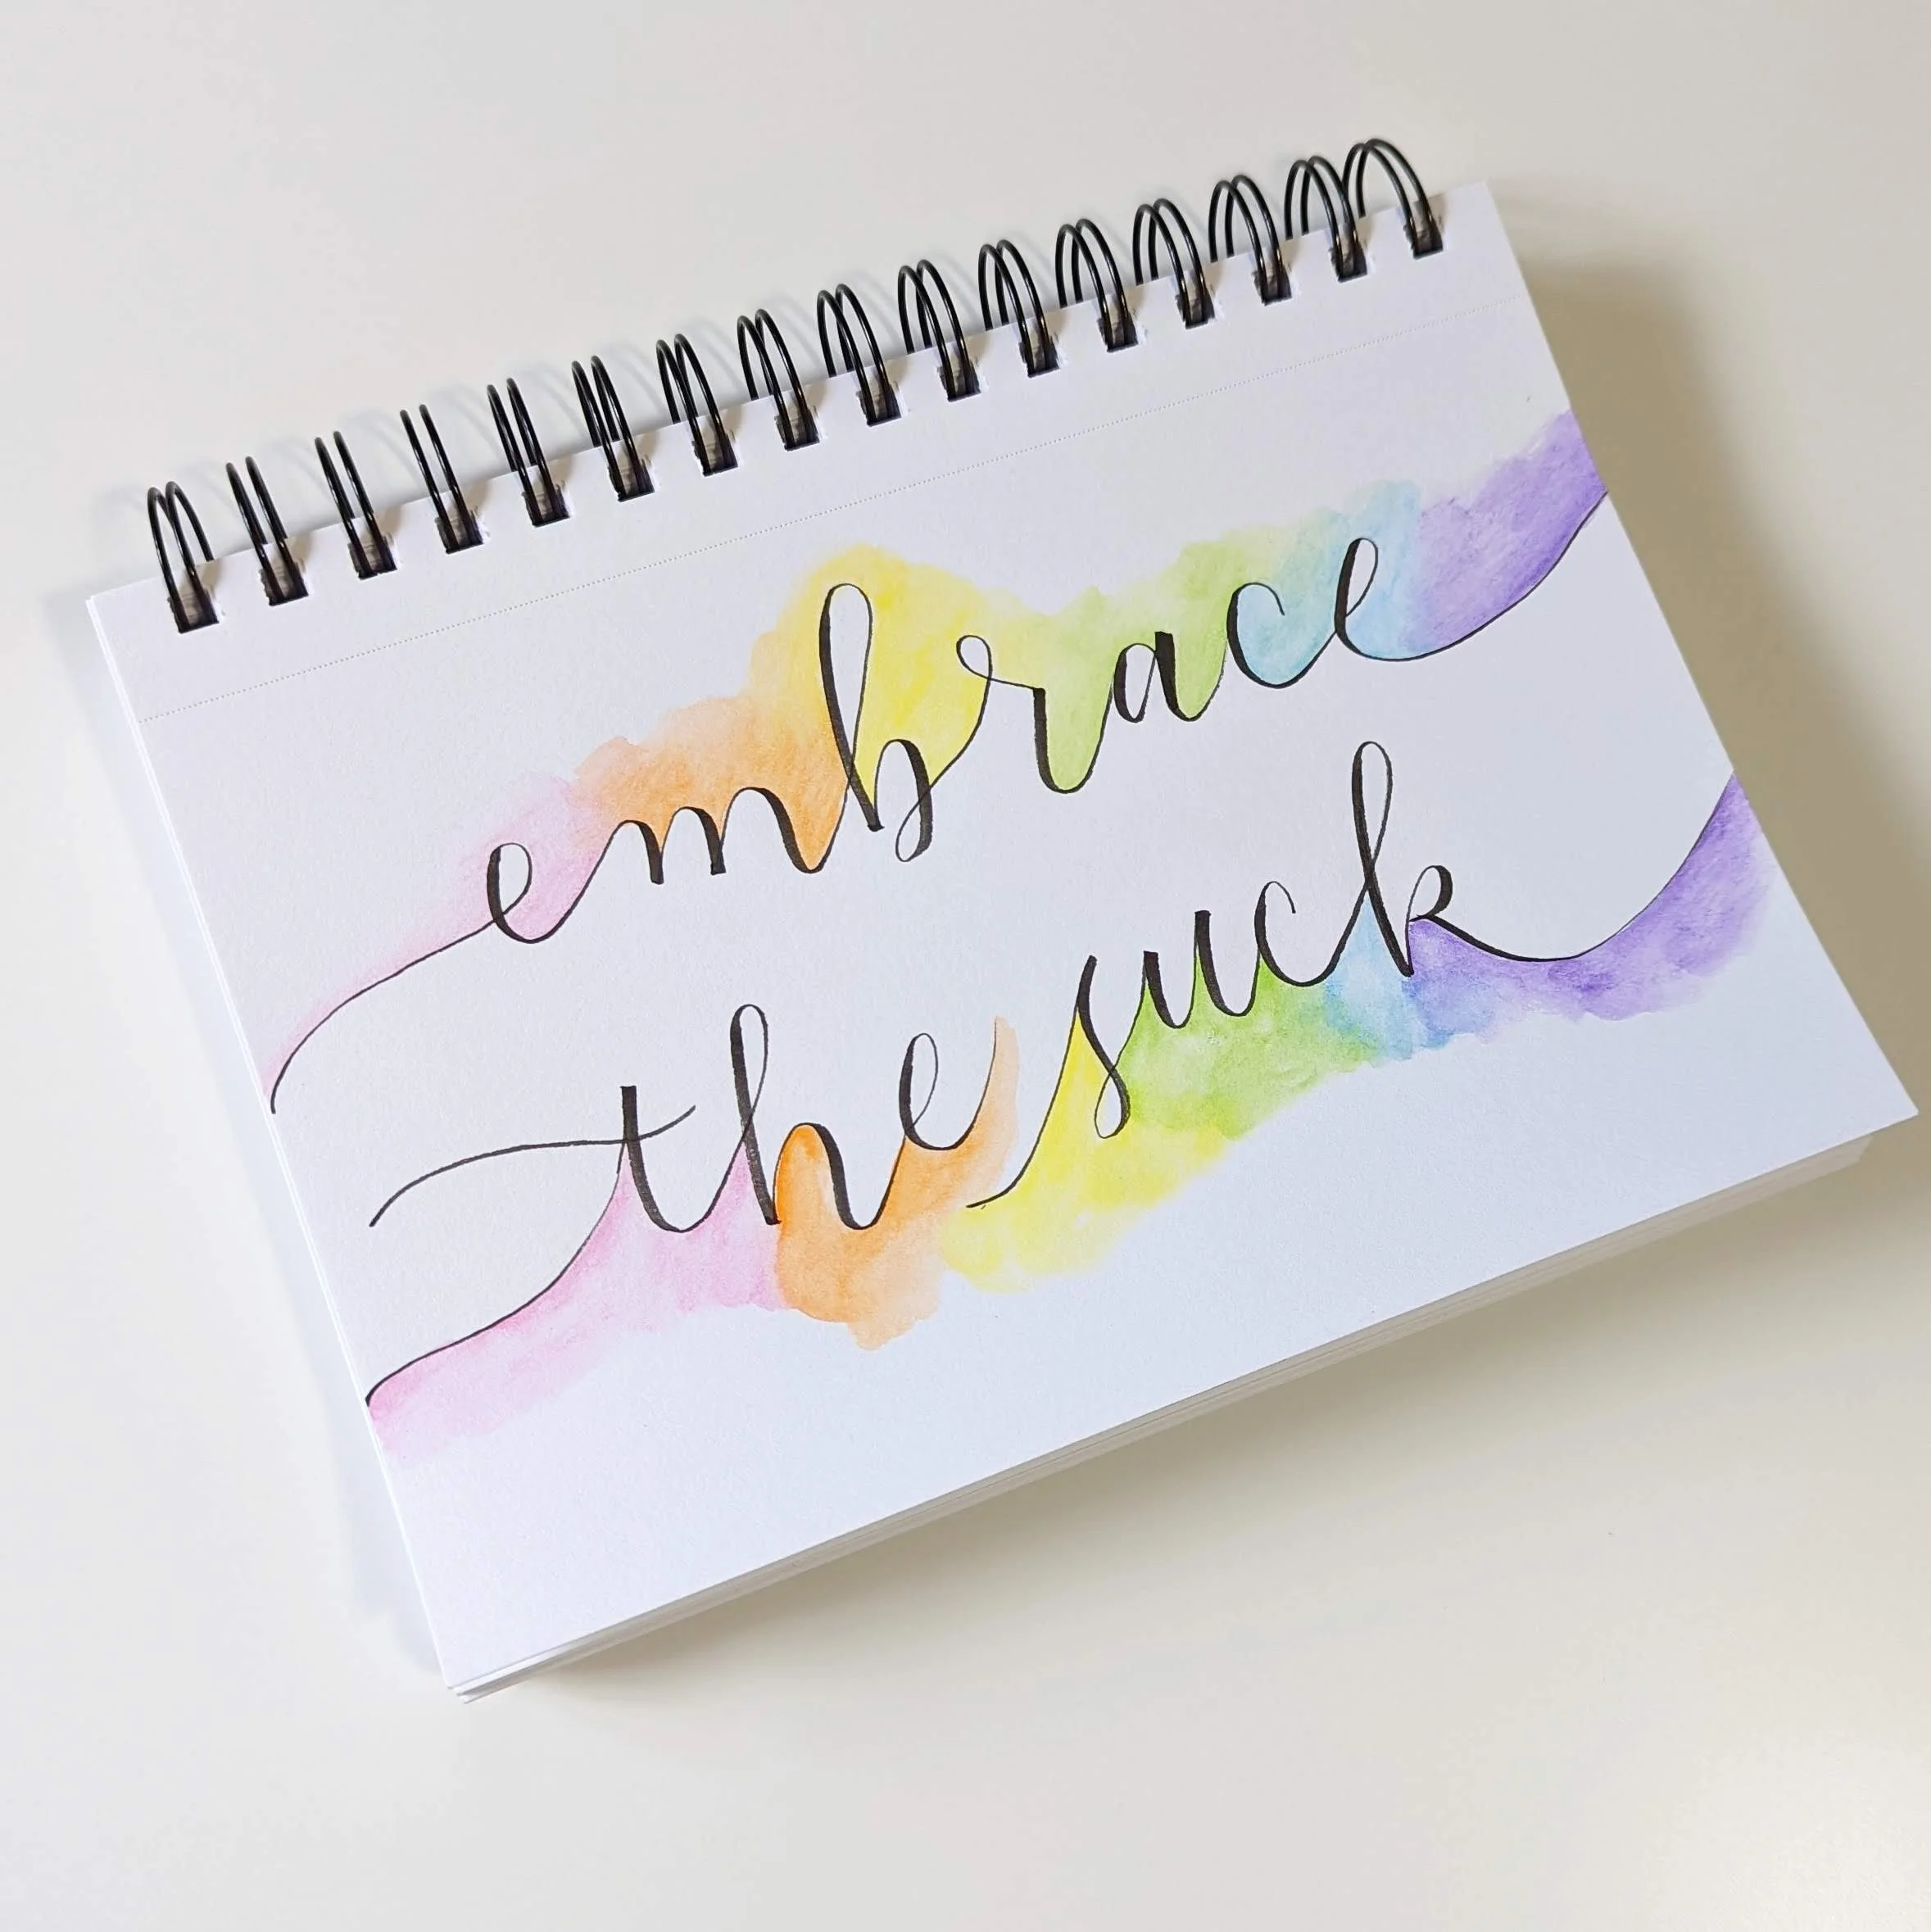 embrace
the suck